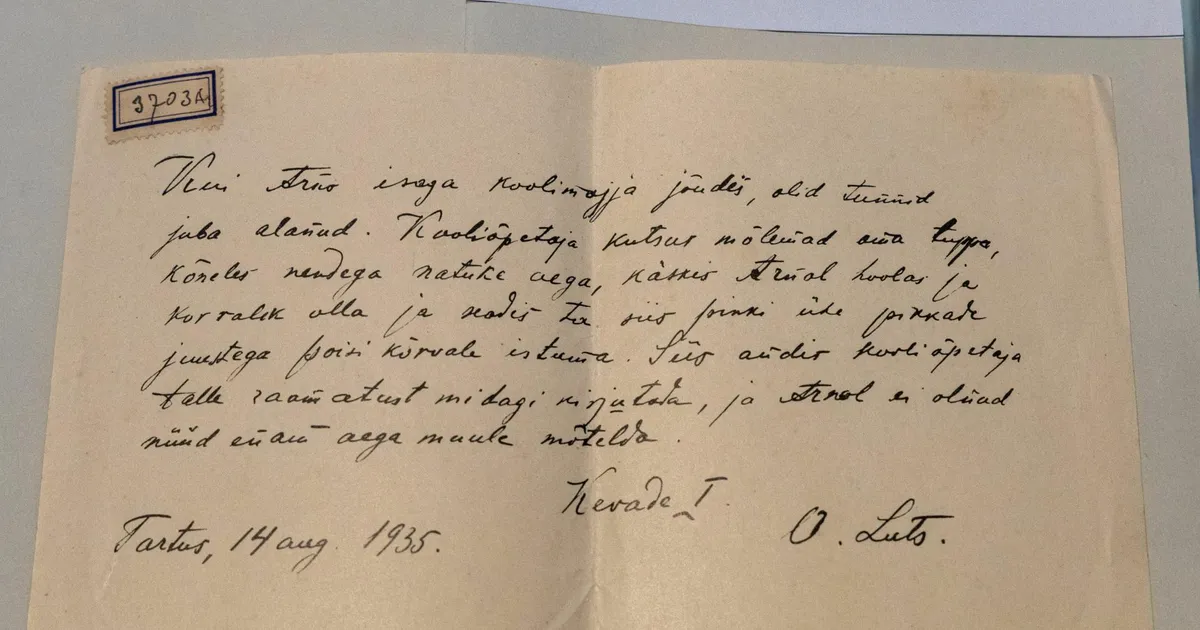 3703A
Kui Arno isaga koolimajja jõudis, olid tunnid
juba alanud. Kooliõpetaja kutsus mõlemad oma tuppa,
kõneles nendega natuke aega, käskis Arnol hoolas ja
korralik olla ja seadis ta siis pinki ühe pikkade
juustega poisi kõrvale istuma. Siis andis kooliõpetaja
talle raamatust midagi kirjutada, ja Arnol ei olnud
nüüd enam aega muule mõtelda.
Kevade I.
Tartus, 14 aug. 1935.
O. Luts.